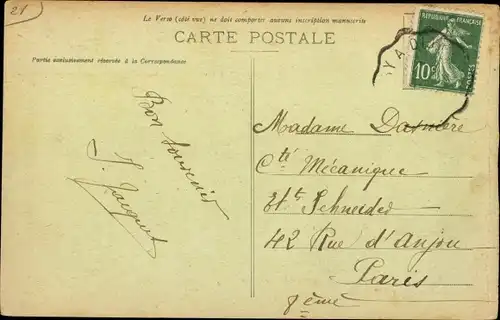 21
Le Verso (côté vue) ne doit comporter aucune inscription manuscrite
CARTE POSTALE
Partie exclusivement réservée à la Correspondance
REPUBLIQUE FRANÇAISE
10c
POSTES
Bon souvenir
J. Jacquet
Madame
Cté Mécanique
Ets Schneider
42 Rue d'Anjou
Paris
8ème